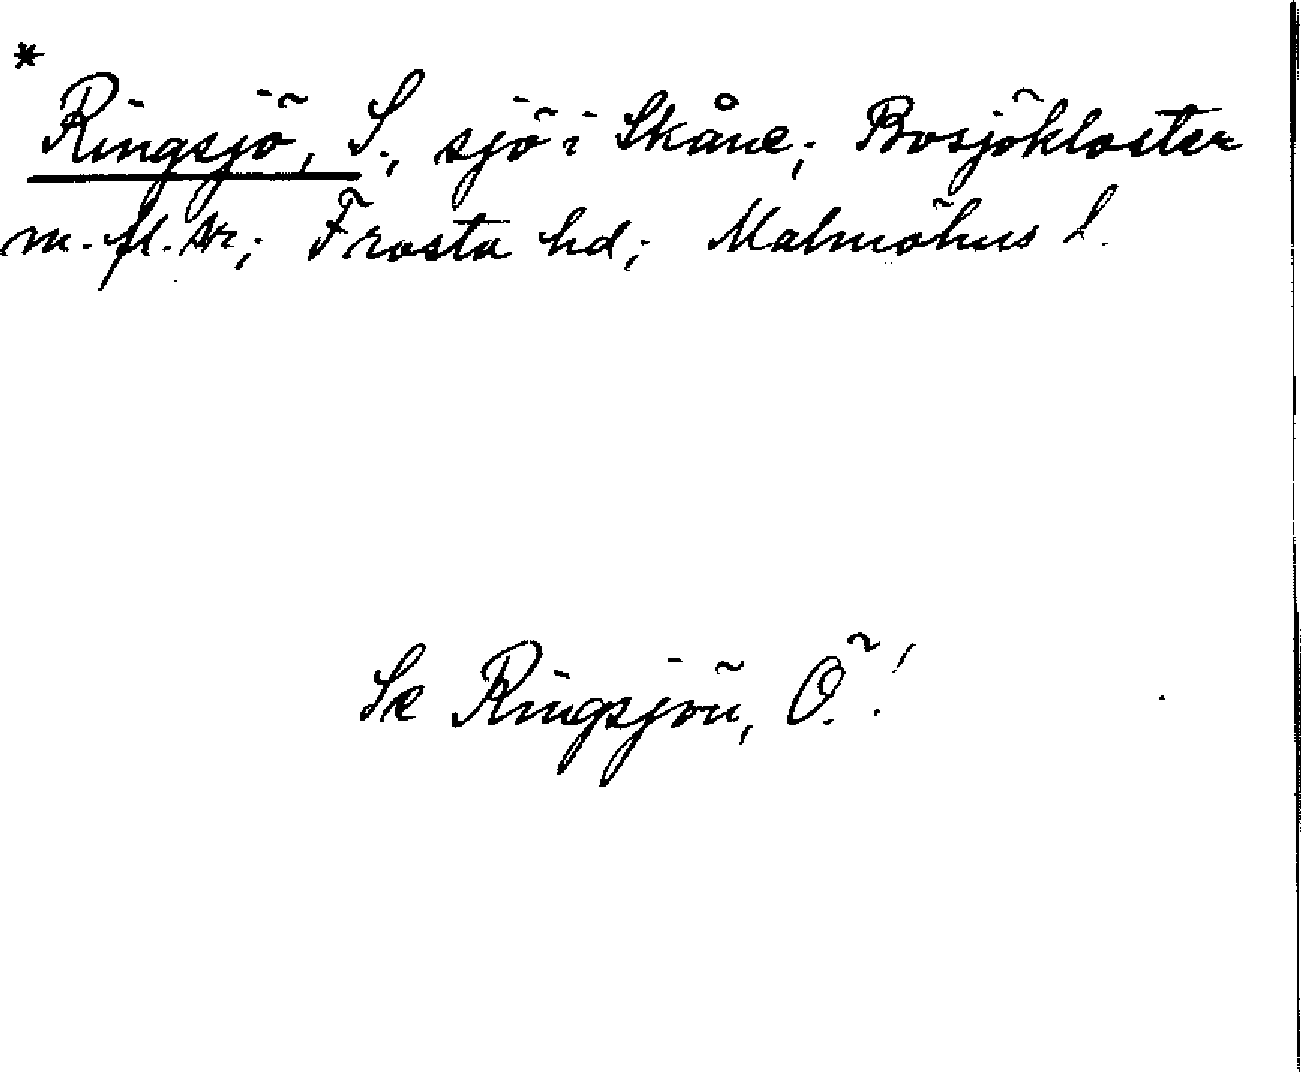 *
Ringsjö, S., sjö i Skåne; Bosjökloster
m. fl. snr; Frosta hd; Malmöhus l.
Se Ringsjön, Ö.!